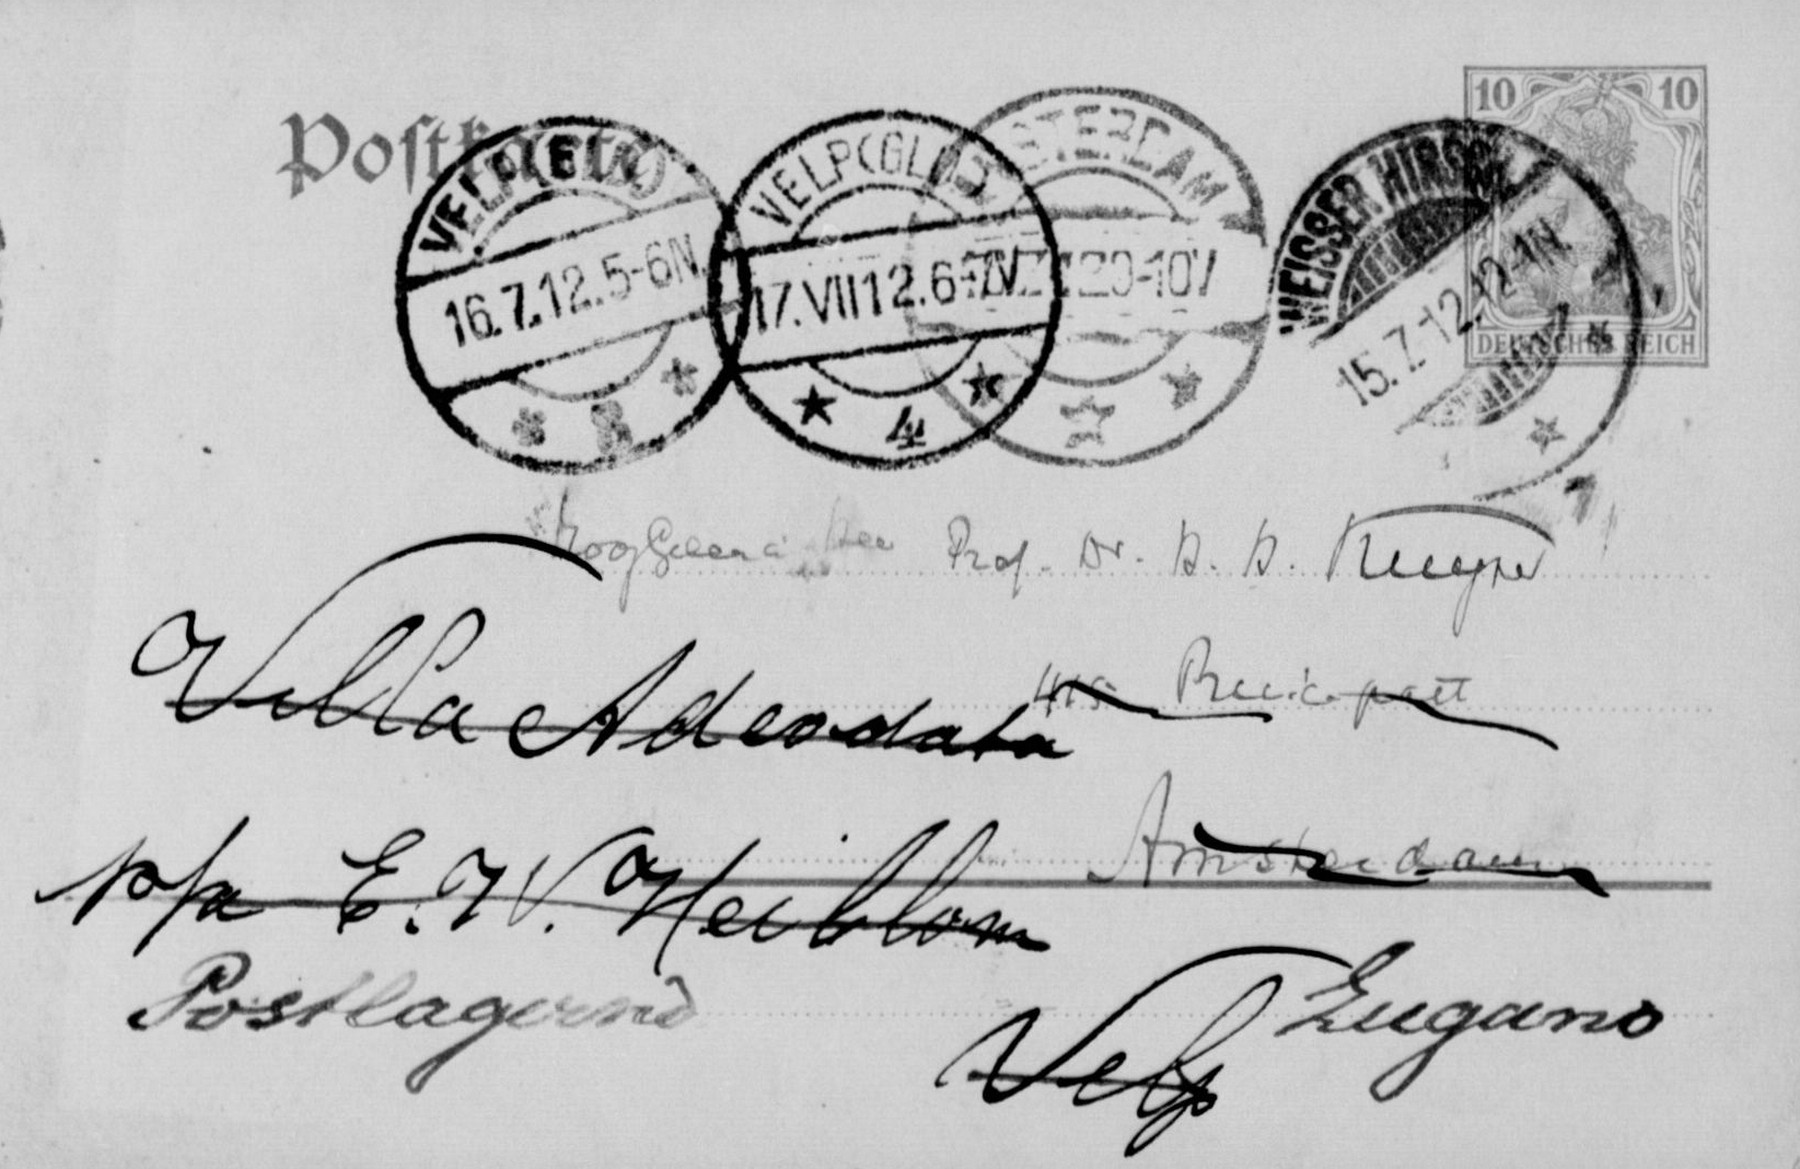 Postkarte
10 10
VELP (GLD)
16.7.12.5-6N
VELP (GLD)
17.VII12.6-7V
4
AMSTERDAM
9-10V
WEISSER HIRSCH
15.7.12.12-1N.
DEUTSCHES REICH
Prof. Dr.
Villa Adeodata
Amsterdam
p/a E. W. Heiblom
Postlagernd
Lugano
Velp